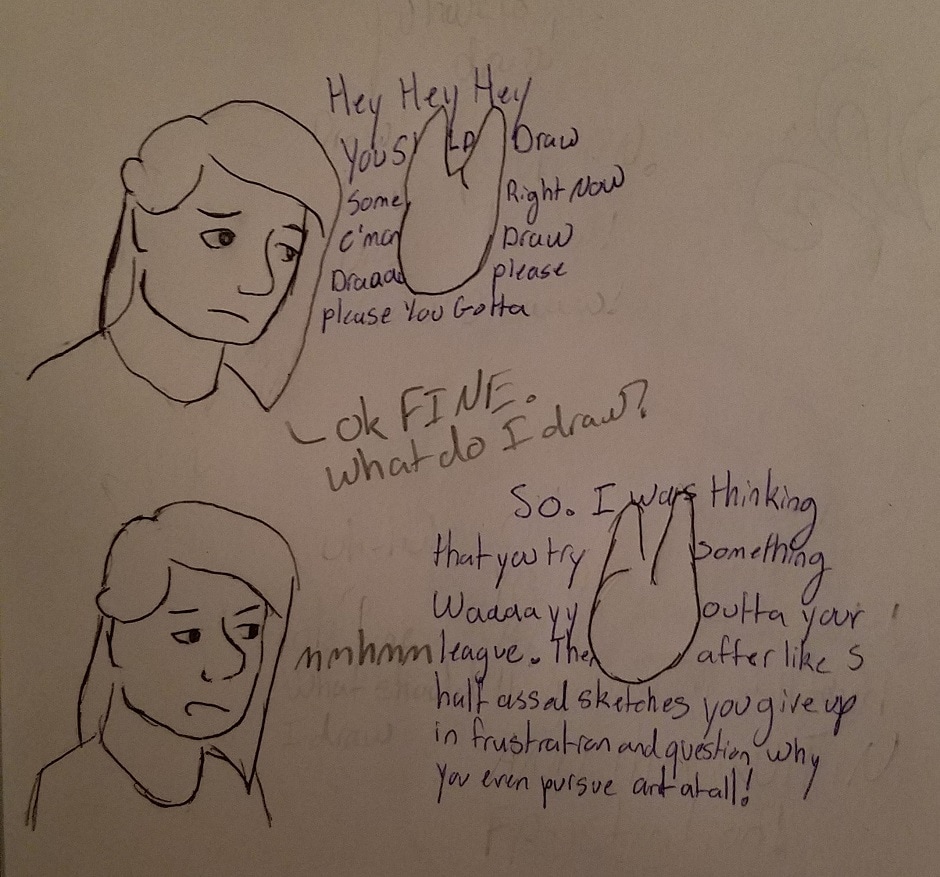 Hey Hey Hey
You S LD Draw
Some Right Now
C'mon Draw
Draaa please
please You Gotta
ok FINE.
What do I draw?
So. I was thinking
that you try something
Waaaayy outta your
mmhmm league. The after like 5
half assed sketches you give up
in frustration and question why
You even pursue art at all!